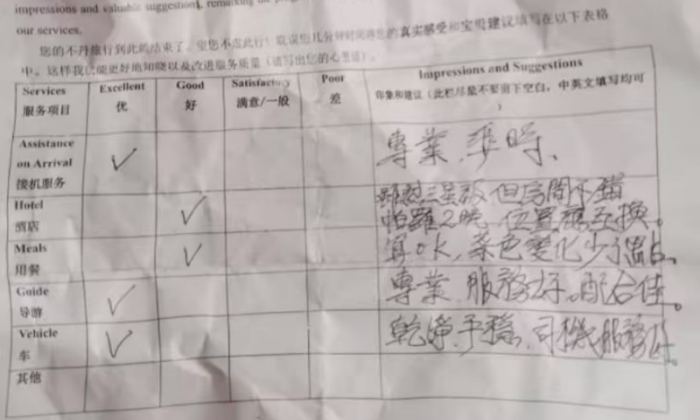 impressions and valuable suggestions, remarking the
our services.
您的不丹旅行到此结束了，望您不虚此行！敬请您几分钟时间将您的真实感受和宝贵建议填写在以下表格
中。这样我们能更好地知晓以及改进服务质量（请写出您的心里话）。
Services Excellent Good Satisfactory Poor Impressions and Suggestions
服务项目 优 好 满意/一般 差 印象和建议（此栏尽量不要留下空白，中英文填写均可
）
Assistance
on Arrival
接机服务
專業、準時、
Hotel 但房間不錯
酒店 位置
Meals
用餐
OK, 菜色變化少了點。
Guide
导游
專業 服務好。配合佳。
Vehicle
车
乾淨、平穩、司機服務好。
其他